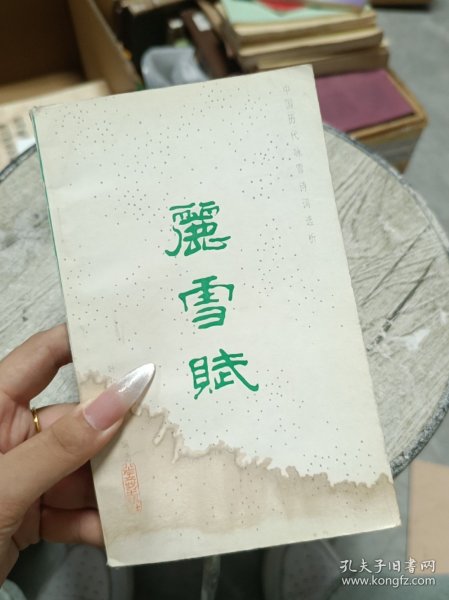 中国历代咏雪诗词选析
麗雪賦
孔夫子旧书网
www.kongfz.com